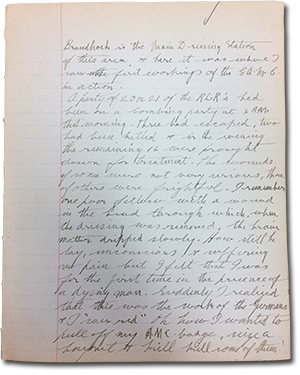 Brandhoek is the Main D-ressing Station
of this area & here it was where I
saw the first workings of the C.A.M.C.
in action.
A party of 20 or 21 of the RCR's had
been on a bombing party at 3 AM.
that morning. Three had escaped, two
had been killed & in the evening
the remaining 16 were brought
down for treatment. The wounds
of some were not very serious, those
of others were frightful. I remember
one poor fellow with a wound
in the head through which, when
the dressing was removed, the brain
matter dripped slowly. How still he
lay, unconscious & suffering
no pain but I felt that I was
for the first time in the presence of
a dying man. Suddenly I realized
that this was the work of the Germans
& I "saw red". Oh how I wanted to
pull off my AMC. badge, seize a
bayonet & kill millions of them!